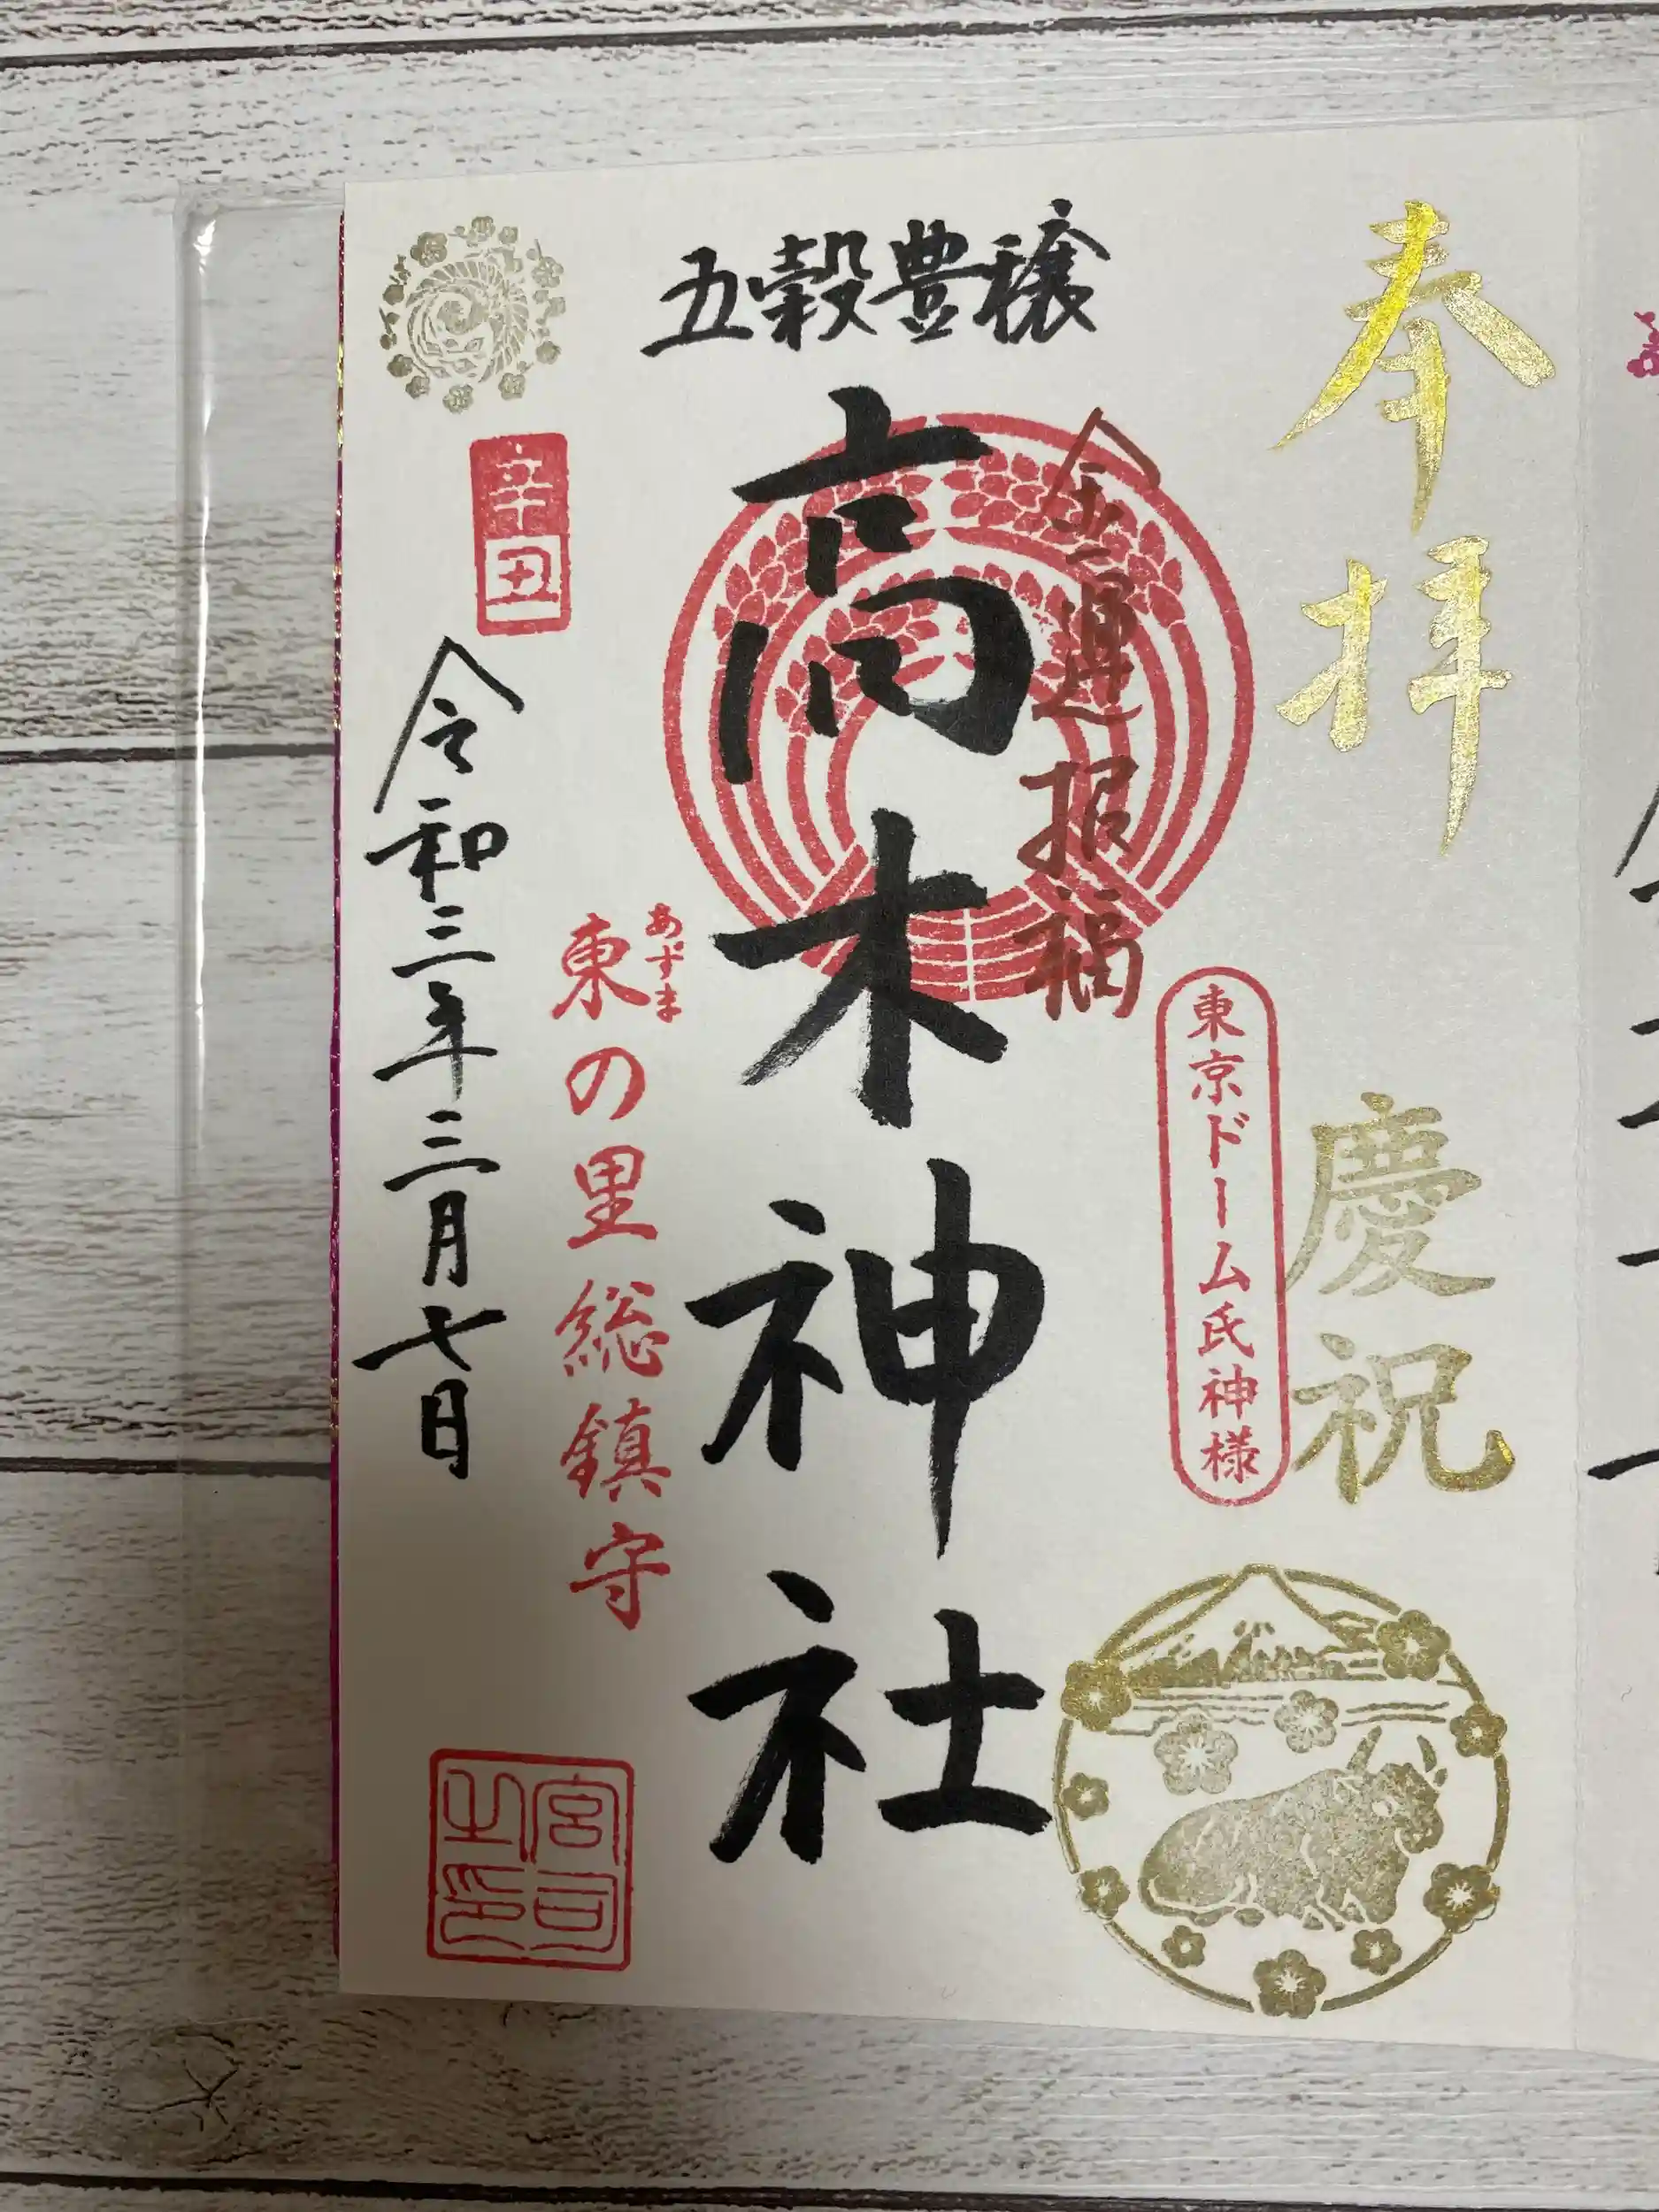 奉拝
慶祝
東京ドーム氏神様
五穀豊穣
金運招福
高木神社
あずま
東の里総鎮守
辛丑
令和三年三月七日
宮司
之印